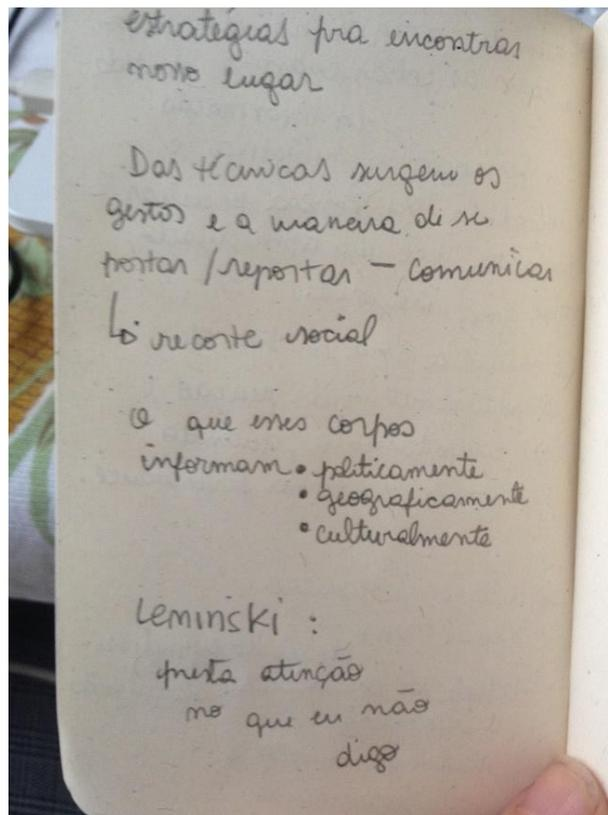 estratégias pra encontrar
novo lugar
Das técnicas surgem os
gestos e a maneira de se
portar / reportar – comunicar
↳ recorte social
O que esses corpos
informam • politicamente
• geograficamente
• culturalmente
Leminski :
presta atenção
no que eu não
digo